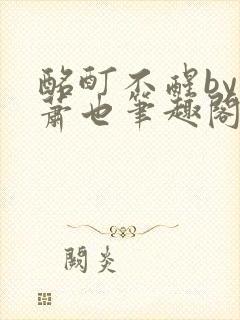 酩酊不醒by
萧也笔趣阁
阙炎